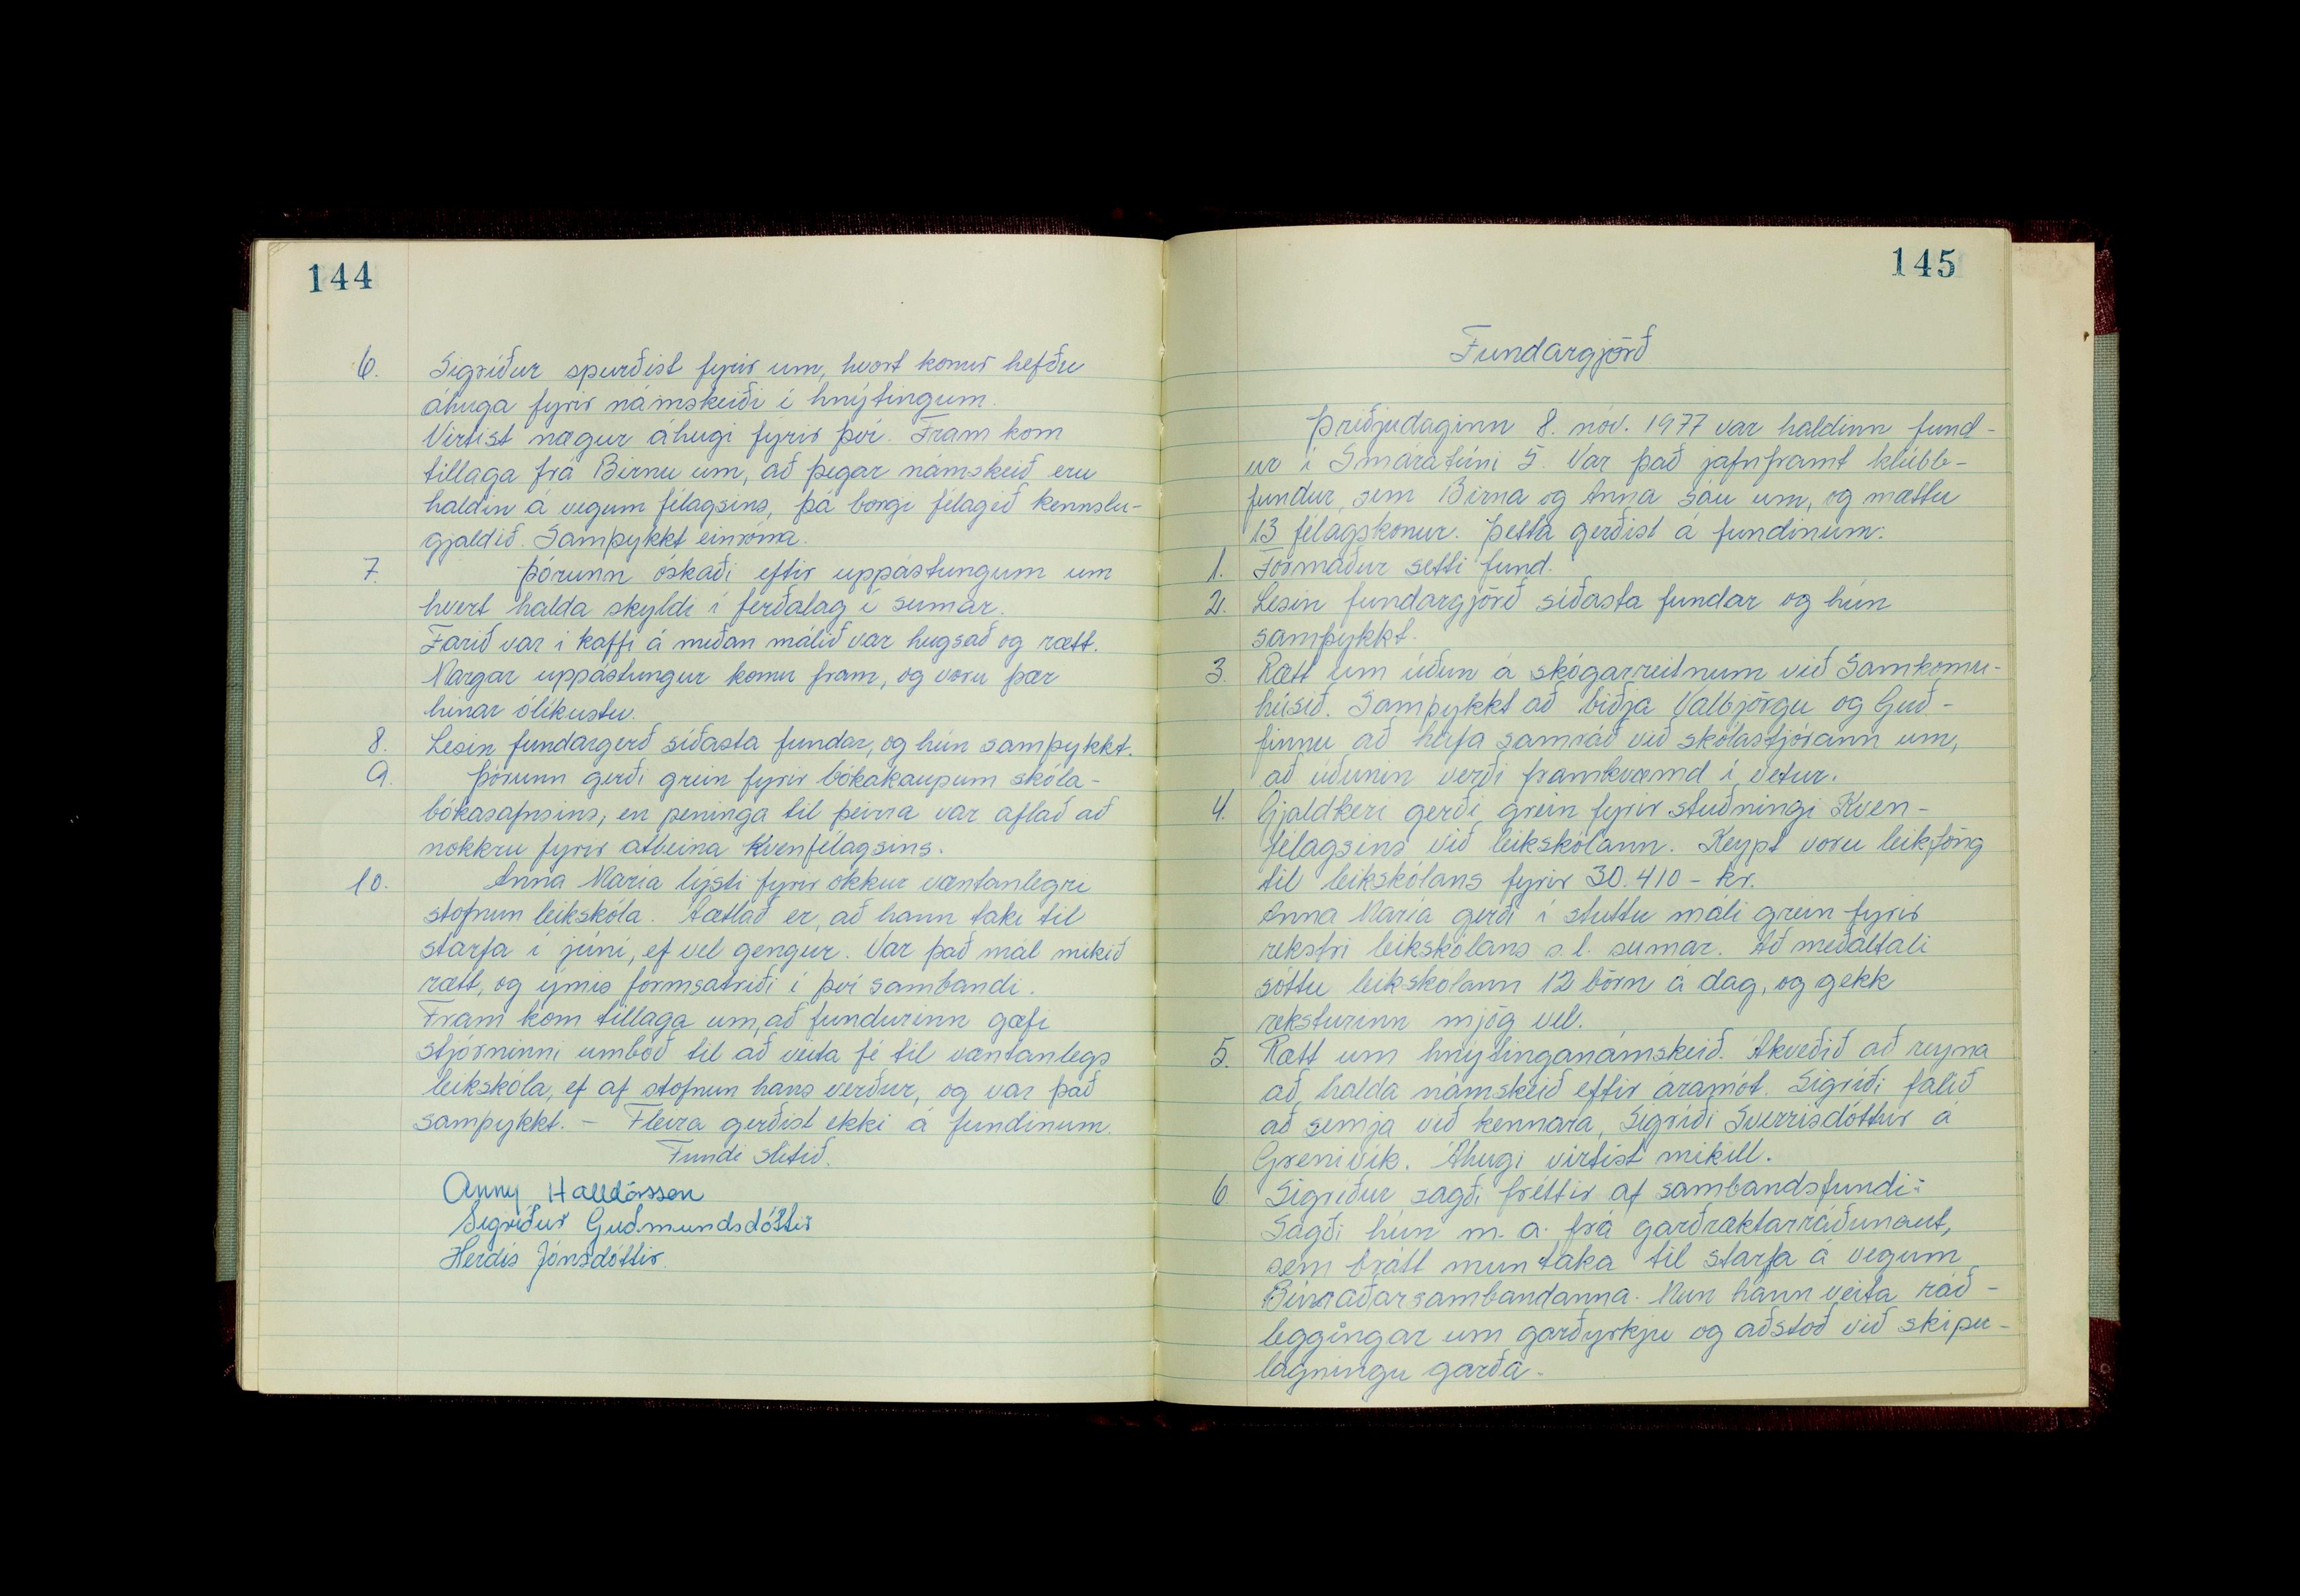 144
6. Sigríður spurðist fyrir um, hvort konur hefðu
áhuga fyrir námskeiði í hnýtingum.
Virtist nægur áhugi fyrir því. Fram kom
tillaga frá Birnu um, að þegar námskeið eru
haldin á vegum félagsins, þá borgi félagið kennslu-
gjaldið. Samþykkt einróma.
7. Þórunn óskaði eftir uppástungum um
hvert halda skyldi í ferðalag í sumar.
Farið var í kaffi á meðan málið var hugsað og rætt.
Margar uppástungur komu fram, og voru þær
hinar ólíkustu.
8. Lesin fundargerð síðasta fundar, og hún samþykkt.
9. Þórunn gerði grein fyrir bókakaupum skóla-
bókasafnsins, en peninga til þeirra var aflað að
nokkru fyrir atbeina Kvenfélagsins.
10. Anna María lýsti fyrir okkur væntanlegri
stofnun leikskóla. Áætlað er, að hann taki til
starfa í júní, ef vel gengur. Var það mál mikið
rætt, og ýmis formsatriði í því sambandi.
Fram kom tillaga um, að fundurinn gæfi
stjórninni umboð til að veita fé til væntanlegs
leikskóla, ef af stofnun hans verður, og var það
samþykkt. - Fleira gerðist ekki á fundinum.
Fundi slitið.
Anny Halldórsson
Sigríður Guðmundsdóttir
Herdís Jónsdóttir.
145
Fundargjörð
Þriðjudaginn 8. nóv. 1977 var haldinn fund-
ur í Smáratúni 5. Var það jafnframt klúbb-
fundur, sem Birna og Anna sáu um, og mættu
13 félagskonur. Þetta gerðist á fundinum:
1. Formaður setti fund.
2. Lesin fundargjörð síðasta fundar og hún
samþykkt.
3. Rætt um úðun á skógarreitnum við Samkomu-
húsið. Samþykkt að biðja Valbjörgu og Guð-
finnu að hafa samráð við skólastjórann um,
að úðunin verði framkvæmd í vetur.
4. Gjaldkeri gerði grein fyrir stuðningi Kven-
félagsins við leikskólann. Keypt voru leikföng
til leikskólans fyrir 30.410- kr.
Anna María gerði í stuttu máli grein fyrir
rekstri leikskólans s.l. sumar. Að meðaltali
sóttu leikskólann 12 börn á dag, og gekk
reksturinn mjög vel.
5. Rætt um hnýtinganámskeið. Ákveðið að reyna
að halda námskeið eftir áramót. Sigríði falið
að semja við kennara, Sigríði Sverrisdóttur á
Grenivík. Áhugi virtist mikill.
6 Sigríður sagði fréttir af sambandsfundi:
Sagði hún m.a. frá garðræktarráðunaut,
sem brátt mun taka til starfa á vegum
Búnaðarsambandanna. Mun hann veita ráð-
leggingar um garðyrkju og aðstoð við skipu-
lagningu garða.